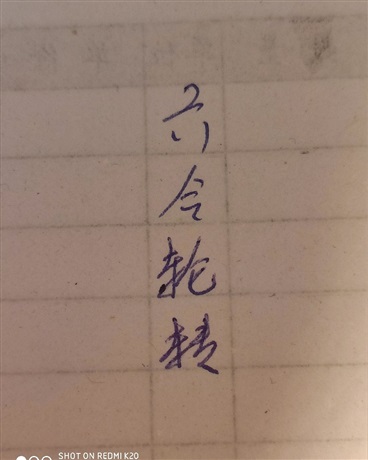 六合轮转
SHOT ON REDMI K20